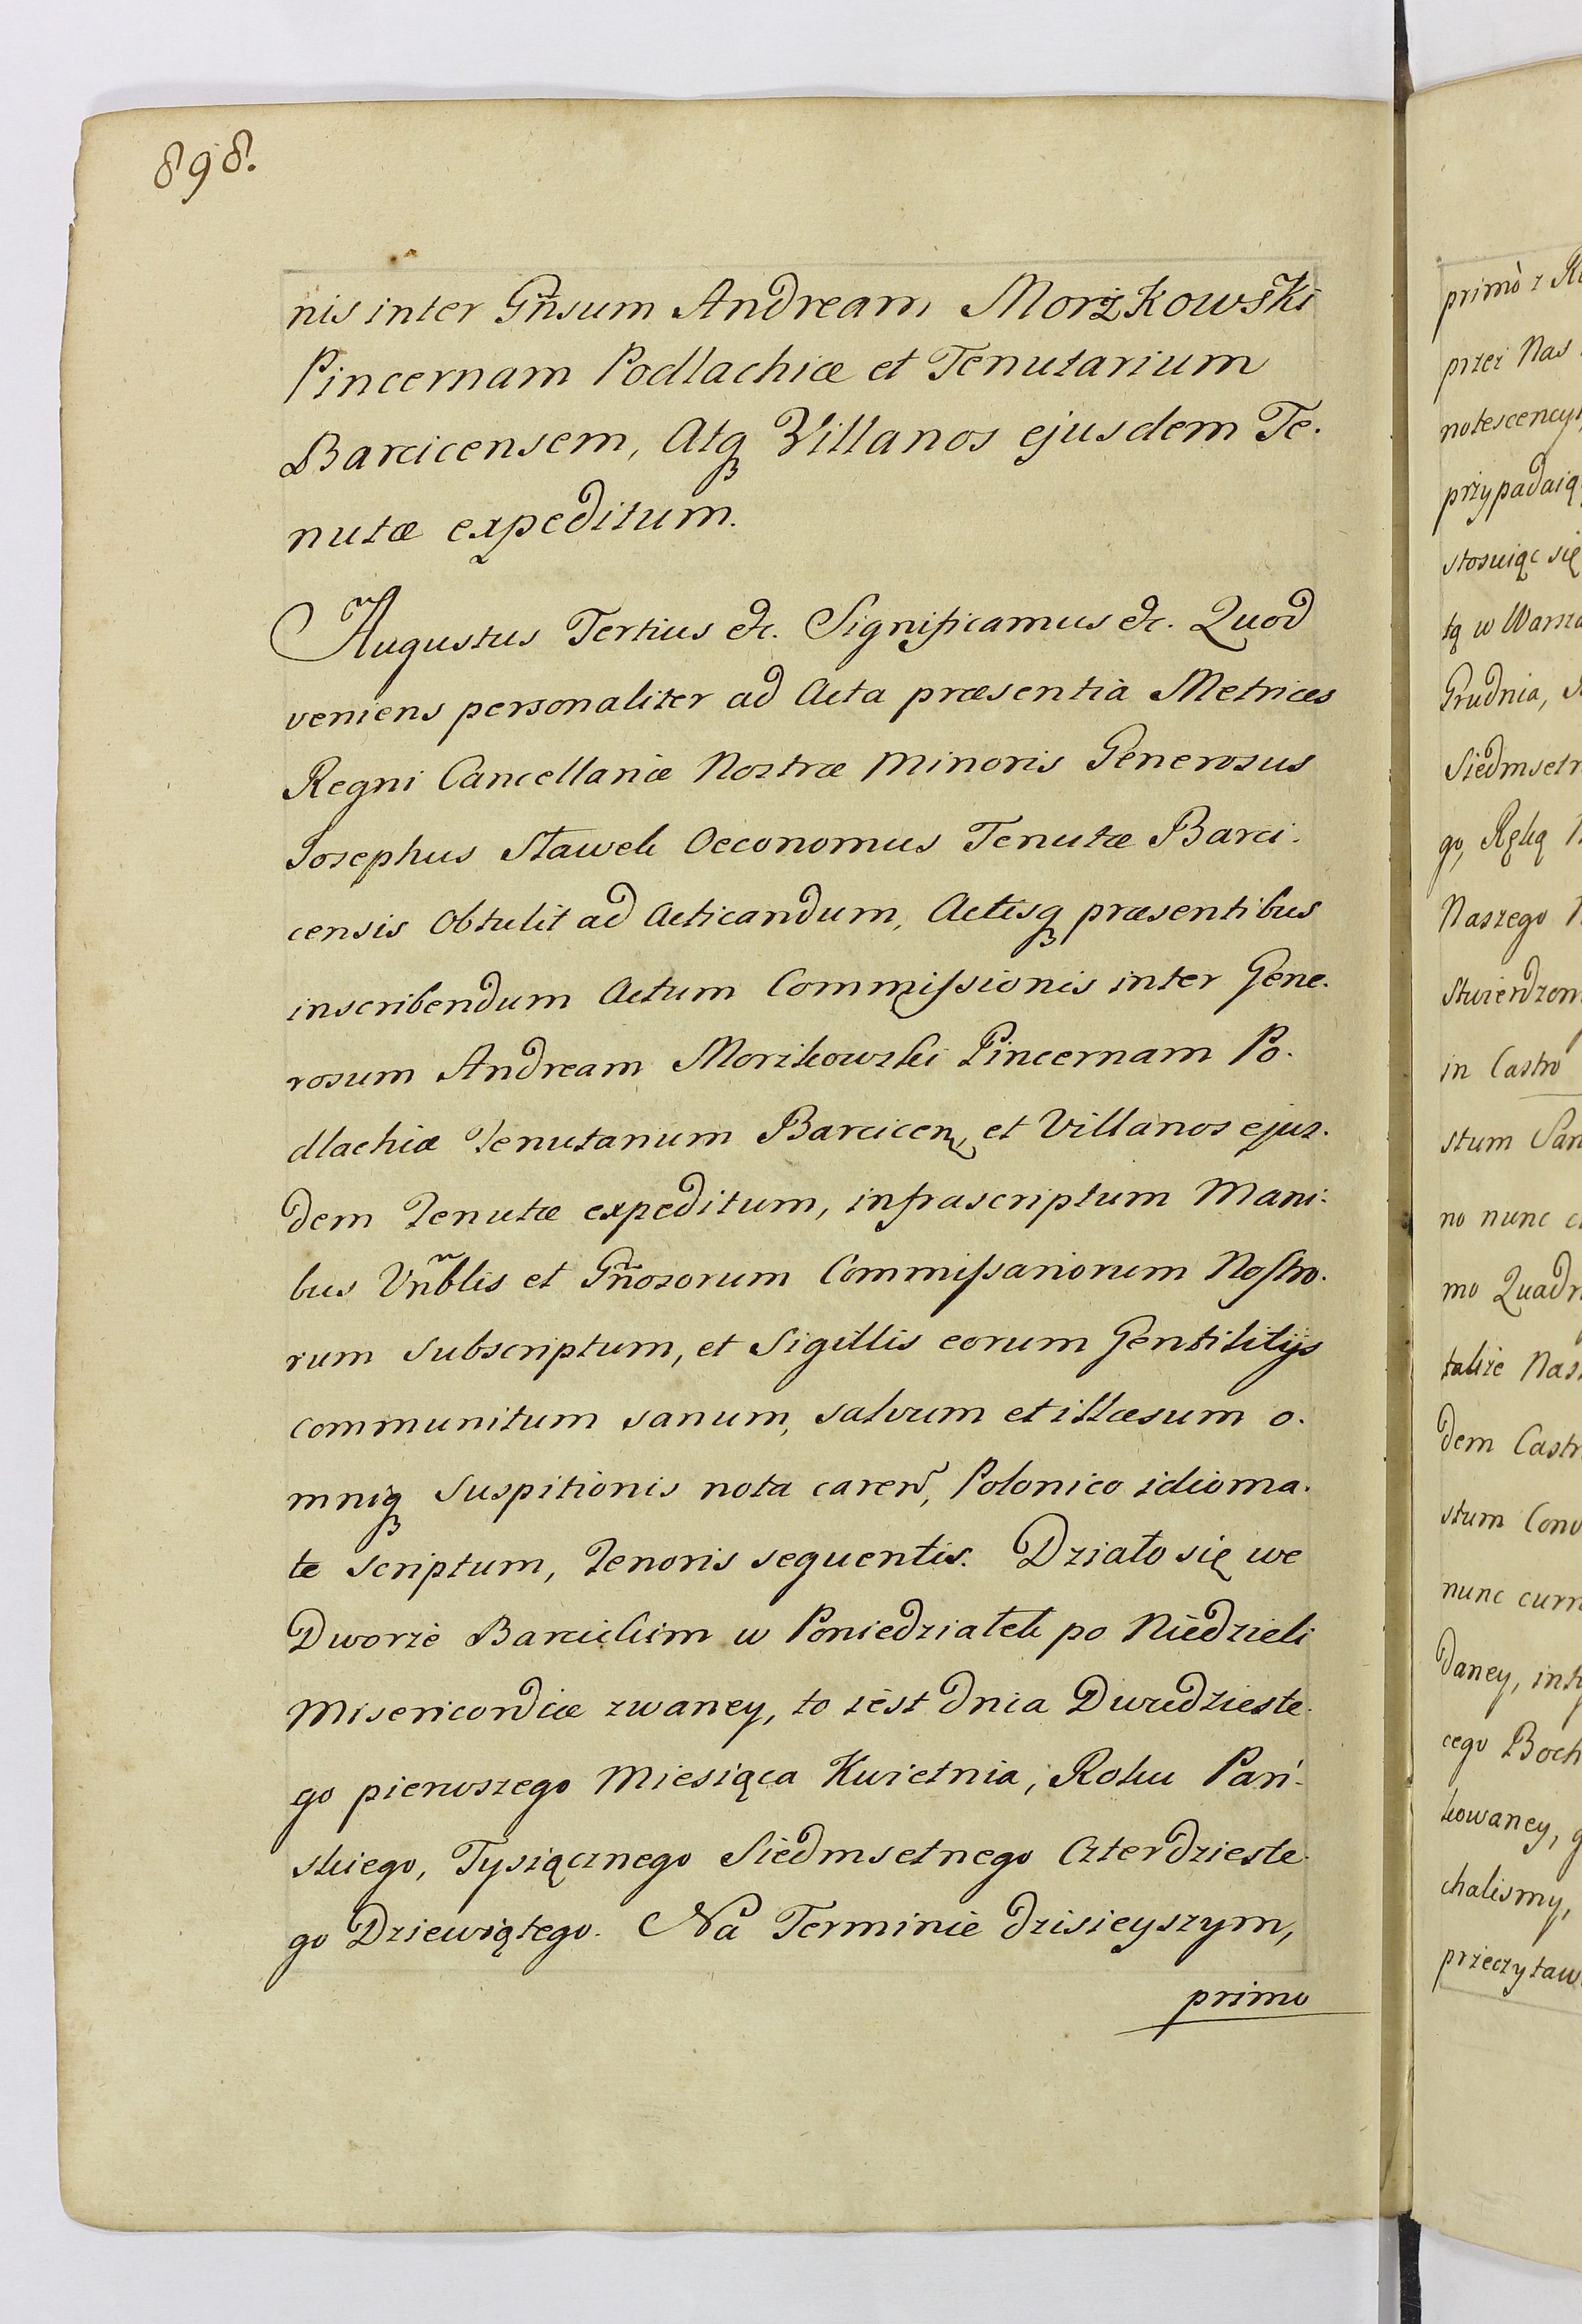 898.
nis inter Gñsum Andream Morżkowski
Pincernam Podlachiæ et Tenutarium
Barcicensem, Atqꝫ Villanos ejusdem Te.
nutæ expeditum.
Augustus Tertius &c. Significamus &c. Quod
veniens personaliter ad Acta præsentia Metrices
Regni Cancellariæ Nostræ Minoris Generosus
Josephus Stawek Oeconomus Tenutæ Barci.
censis Obtulit ad Acticandum, Actisqꝫ præsentibus
inscribendum Actum Commissionis inter Gene.
rosum Andream Morzkowski Pincernam Po.
dlachiæ Tenutarium Barcicen, et Villanos ejus.
dem Tenutæ expeditum, infrascriptum Mani.
bus Vñblis et Gñosorum Commissariorum Nostro.
rum subscriptum, et Sigillis eorum Gentilitijs
communitum sanum, salvum et illæsum o.
mniqꝫ Suspitionis nota careñ, Polonico idioma.
te scriptum, Tenoris sequentis. Działo się we
Dworze Barcickim w Poniedziałek po Niedzieli
Misericordiæ zwaney, to iest dnia Dwudzieste.
go pierwszego Miesiąca Kwietnia, Roku Pań.
skiego, Tysiącznego Siedmsetnego Czterdzieste.
go Dziewiątego. Na Terminie dzisieyszym,
primo
primò z
przez Nas
notescency
przypadaią
stosuiąc się
tą w Warsza
Grudnia,
Siedmsetn
go, Ręką
Naszego
Stwierdzon
in Castro
stum San
no nunc
mo Quadr
takze Nas
dem Castr
stum Conv
nunc curr
daney,
cego Boch
kowaney,
chalismy,
przeczytaw